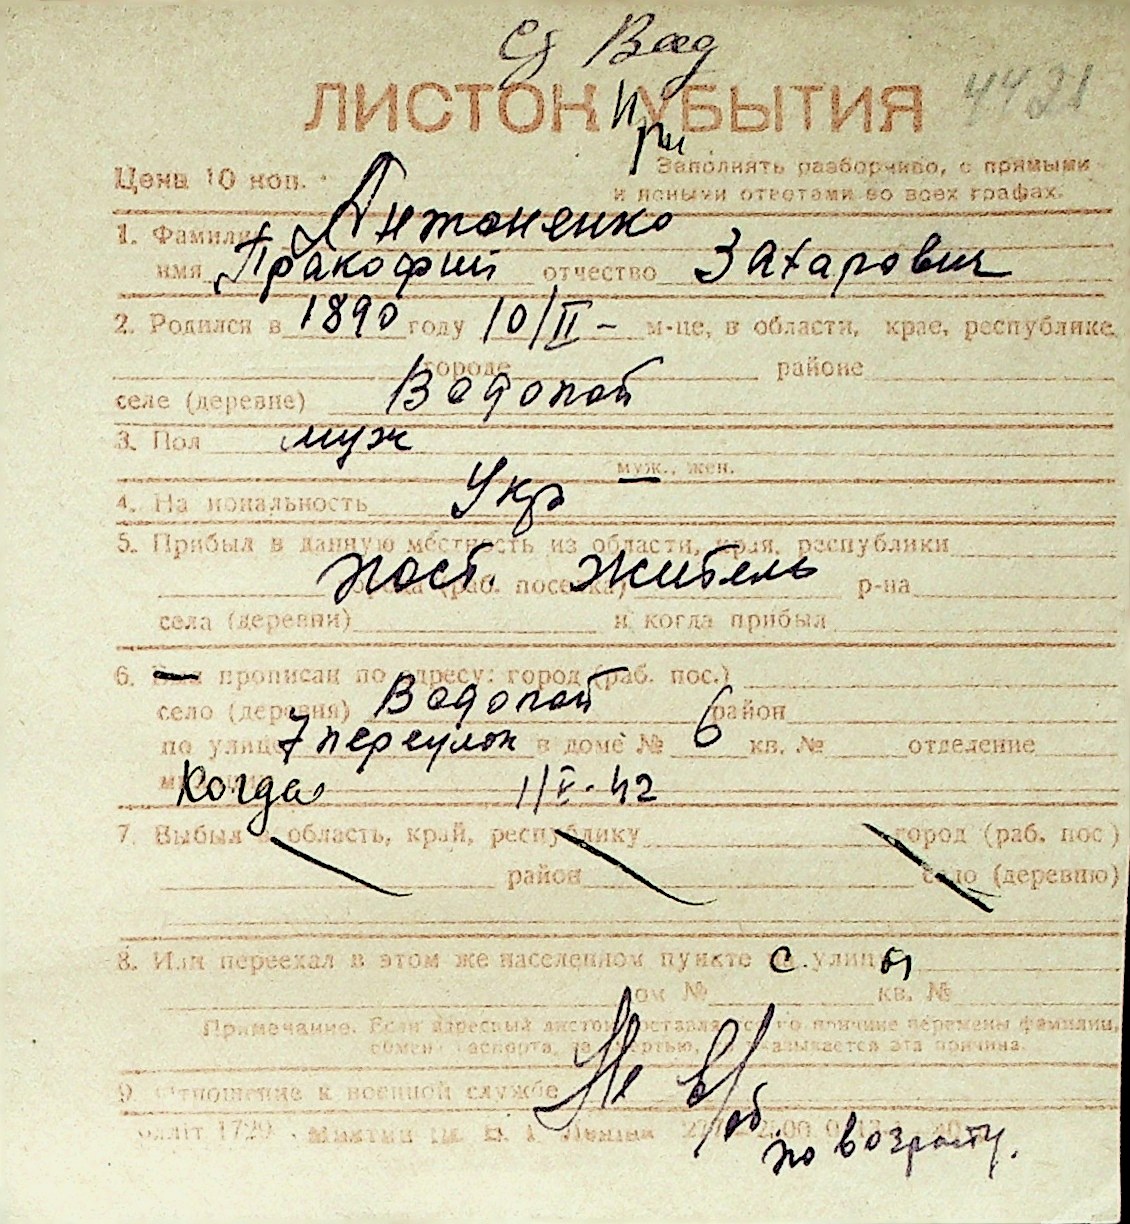 Вод
ЛИСТОК УБЫТИЯ 4421
При
Цена 10 коп. Заполнять разборчиво, с прямыми
и ясными ответами во всех графах.
1. Фамилия Антоненко
имя Пракофий отчество Захарович
2. Родился в 1890 году 10/II – м-це, в области, крае, республике
городе районе
селе (деревне) Водопой
3. Пол муж
муж., жен.
4. Национальность Укр
5. Прибыл в данную местность из области, края, республики
пост. житель
города (раб. поселка) р-на
села (деревни) и когда прибыл
6. Был прописан по адресу: город (раб. пос.)
село (деревня) Водопой район
по улице 7 переулок в доме № 6 кв. № отделение
Когда 1/V-42
7. Выбыл в область, край, республику город (раб. пос)
район село (деревню)
8. Или переехал в этом же населенном пункте на улицу
дом № кв. №
Примечание. Если адресный листок составляется по причине перемены фамилии,
обмена паспорта, за смертью, указывается эта причина.
9. Отношение к военной службе Не в/об.
по возрасту.